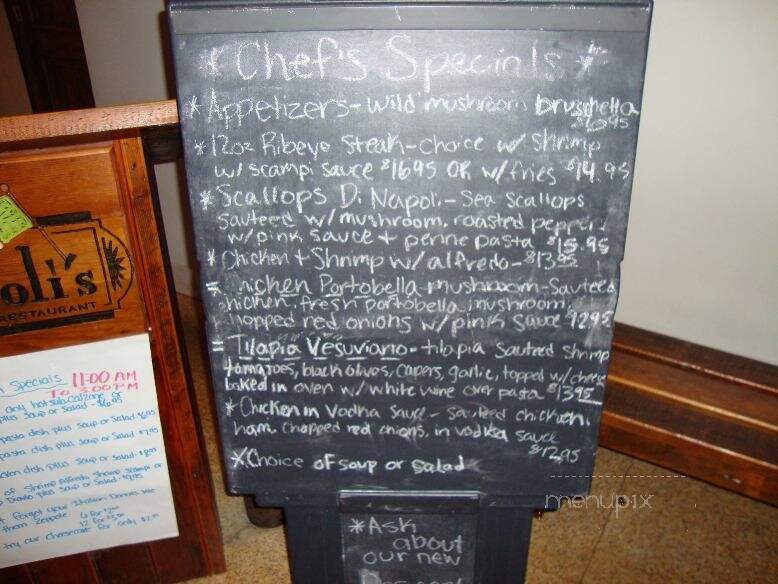 * Chef's Specials *
* Appetizers - wild mushroom bruschetta
$6.95
* 12oz Ribeye Steak - choice w/ shrimp
w/ scampi sauce $16.95 OR w/ fries $14.95
* Scallops Di Napoli - sea scallops
sauteed w/ mushroom, roasted pepper
w/ pink sauce + penne pasta $15.95
* Chicken + Shrimp w/ alfredo - $13.95
Chicken Portobella mushroom - Sauteed
chicken, fresh portobella mushroom,
chopped red onions w/ pink sauce $12.95
= Tilapia Vesuviano - tilapia sauteed shrimp
tomatoes, black olives, capers, garlic, topped w/ cheese
baked in oven w/ white wine over pasta $13.95
* Chicken in Vodka sauce - sauteed chicken,
ham, chopped red onions, in vodka sauce
$12.95
* Choice of soup or salad
* Ask
about
our new
oli's
RESTAURANT
Specials 11:00 AM
TO 3:00 P.M
any hot sub, calzone, or
plus soup or salad - $6.95
pasta dish plus soup or salad
pasta dish plus soup or salad
dish plus soup or salad
of shrimp
plus soup or salad
forgot your Italian
them Zeppole
12 for
try our cheesecake for only $2.95
menupix